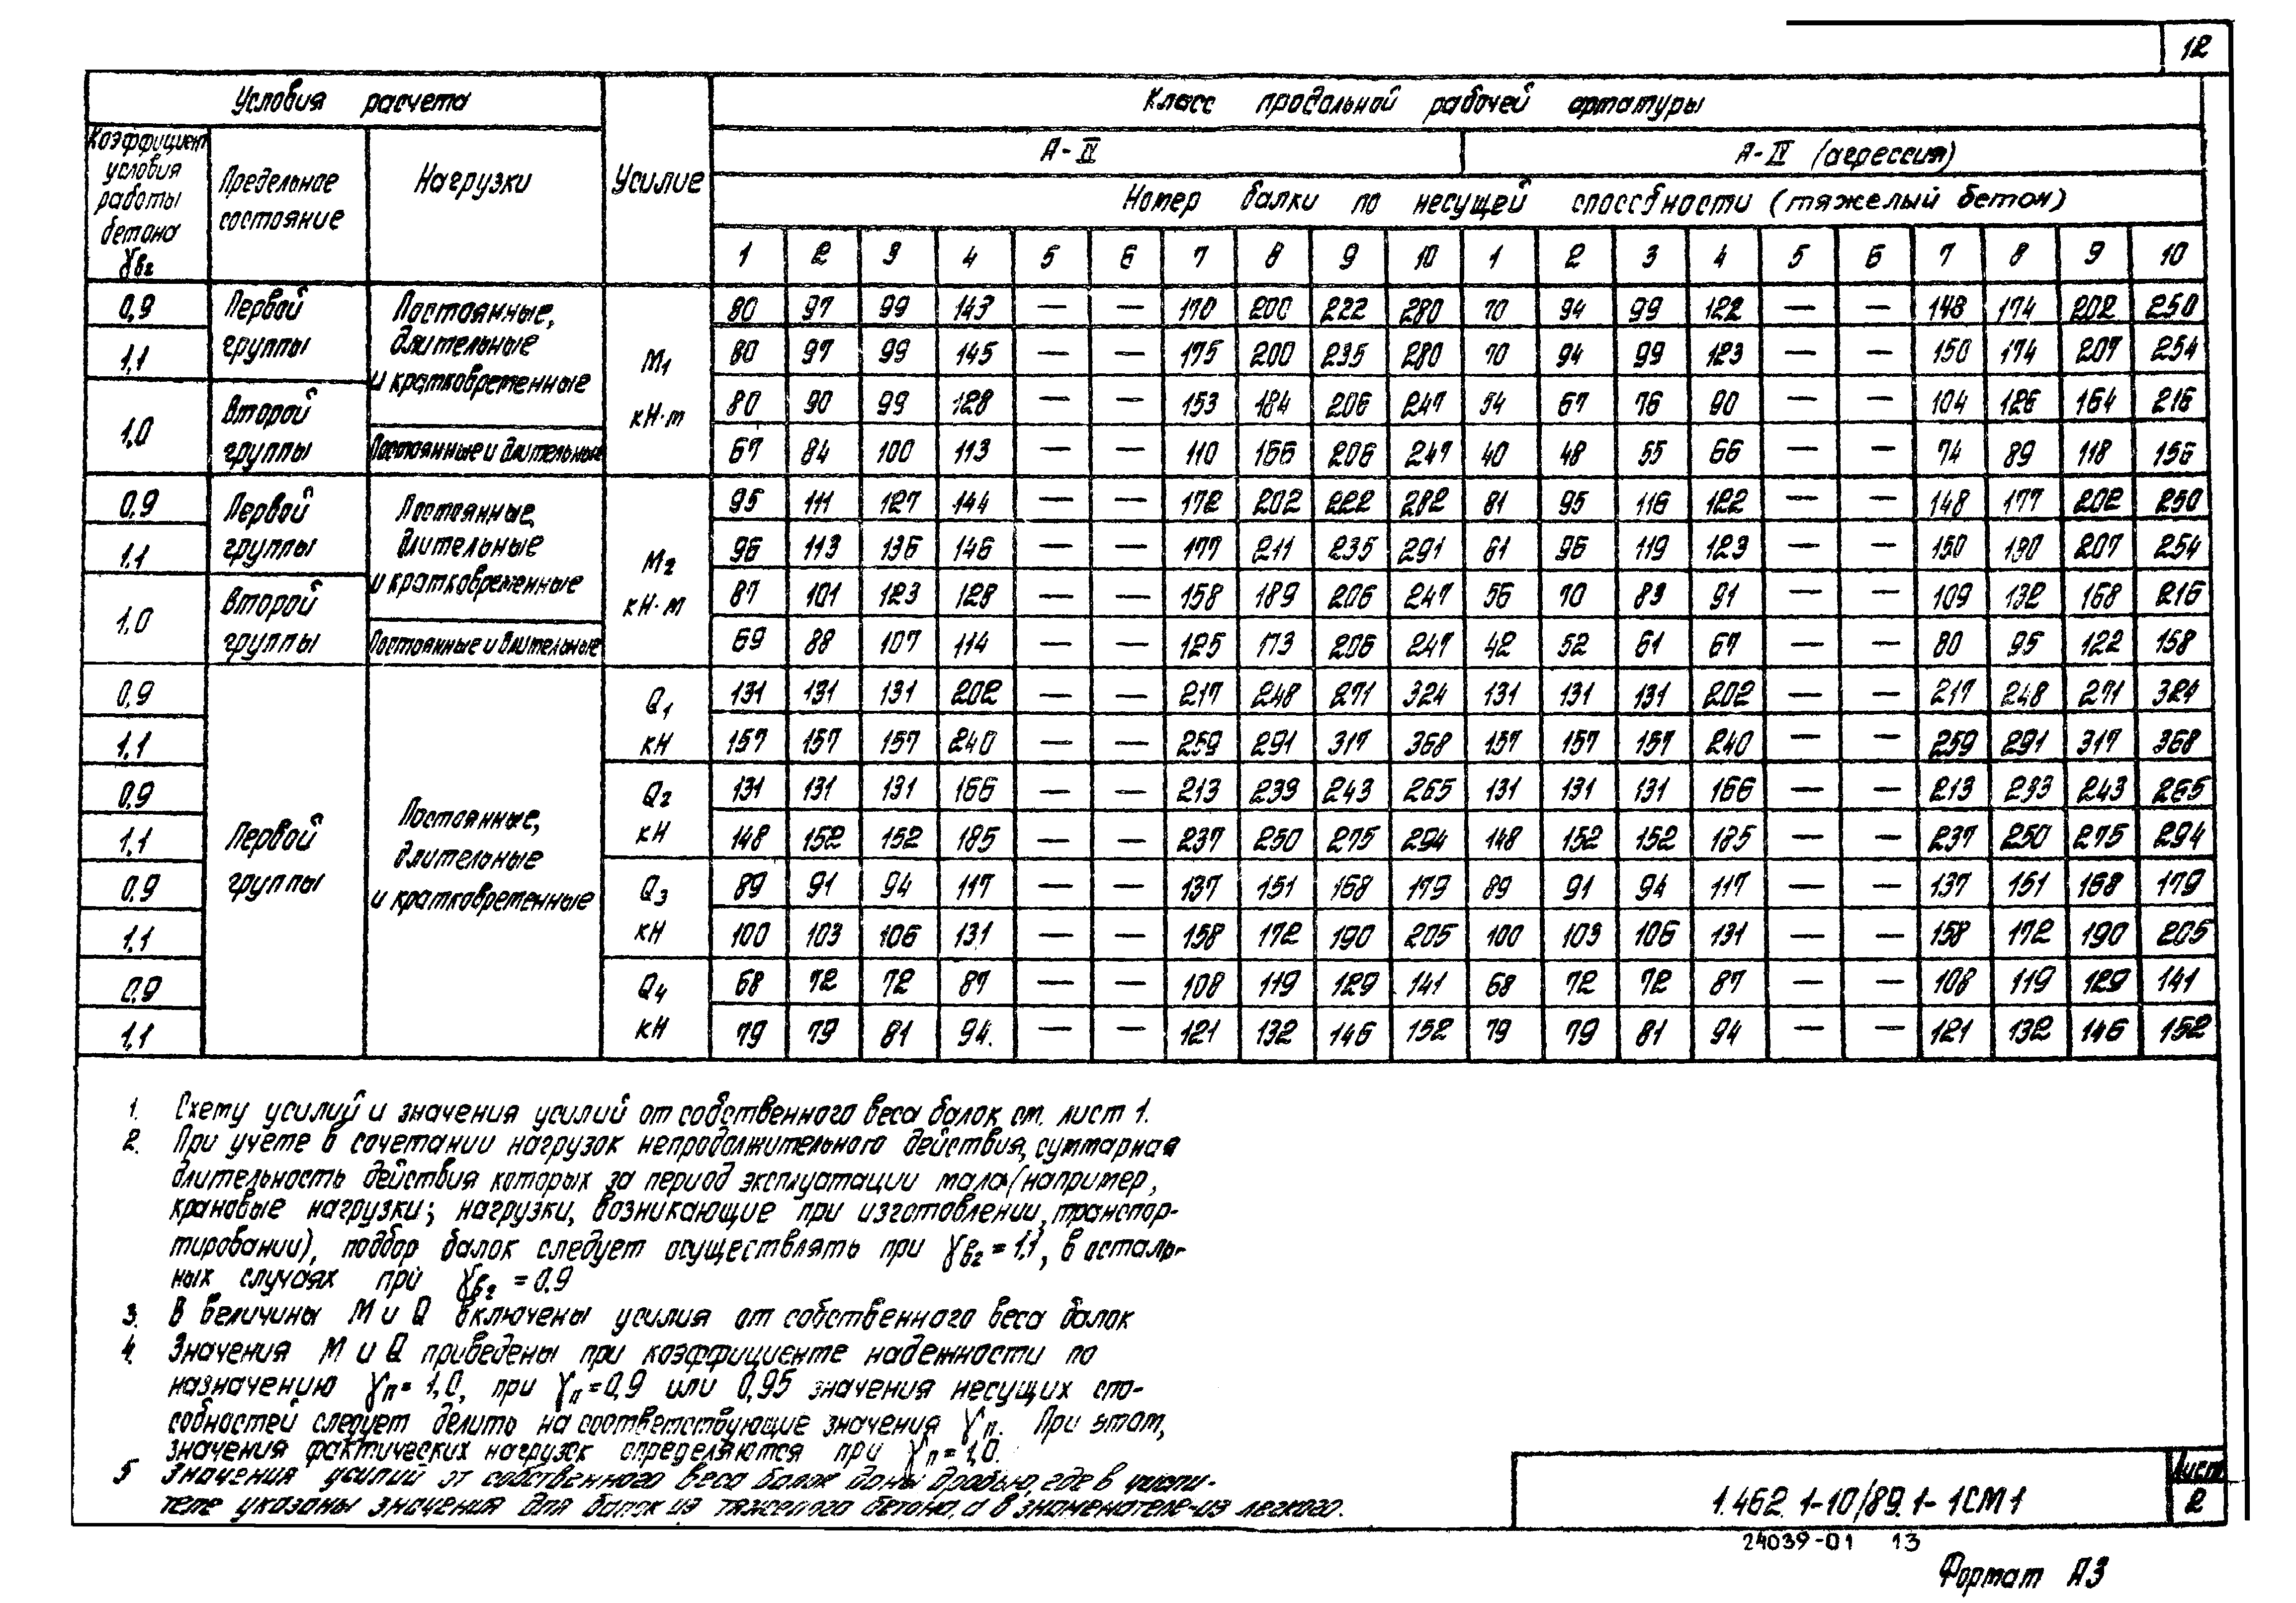 12
Условия расчета
Класс продольной рабочей арматуры
Коэффициент условия работы бетона γв2
Предельное состояние
Нагрузки
Усилие
А-IV
А-IV (агрессия)
Номер балки по несущей способности (тяжелый бетон)
1 2 3 4 5 6 7 8 9 10 1 2 3 4 5 6 7 8 9 10
0,9 Первой группы Постоянные, длительные и кратковременные М1 кН·м 80 97 99 143 — — 170 200 222 280 70 94 99 122 — — 148 174 202 250
1,1 80 97 99 145 — — 175 200 235 280 70 94 99 123 — — 150 174 207 254
1,0 Второй группы 80 90 99 128 — — 153 184 206 247 54 67 76 90 — — 104 126 164 216
Постоянные и длительные 67 84 100 113 — — 110 166 206 247 40 48 55 66 — — 74 89 118 156
0,9 Первой группы Постоянные, длительные и кратковременные М2 кН·м 95 111 127 144 — — 172 202 222 282 81 95 116 122 — — 148 177 202 250
1,1 96 113 136 146 — — 177 211 235 291 81 96 119 123 — — 150 180 207 254
1,0 Второй группы 87 101 123 128 — — 158 189 206 247 56 70 83 91 — — 109 132 168 216
Постоянные и длительные 69 88 107 114 — — 125 173 206 247 42 52 61 67 — — 80 95 122 158
0,9 Первой группы Постоянные, длительные и кратковременные Q1 кН 131 131 131 202 — — 217 248 271 324 131 131 131 202 — — 217 248 271 324
1,1 157 157 157 240 — — 259 291 317 368 157 157 157 240 — — 259 291 317 368
0,9 Q2 кН 131 131 131 166 — — 213 233 243 265 131 131 131 166 — — 213 233 243 265
1,1 148 152 152 185 — — 237 250 275 294 148 152 152 185 — — 237 250 275 294
0,9 Q3 кН 89 91 94 117 — — 137 151 168 179 89 91 94 117 — — 137 151 168 179
1,1 100 103 106 131 — — 158 172 190 205 100 103 106 131 — — 158 172 190 205
0,9 Q4 кН 68 72 72 87 — — 108 119 129 141 68 72 72 87 — — 108 119 129 141
1,1 79 79 81 94. — — 121 132 146 152 79 79 81 94 — — 121 132 146 152
1. Схему усилий и значения усилий от собственного веса балок см. лист 1.
2. При учете в сочетании нагрузок непродолжительного действия, суммарная
длительность действия которых за период эксплуатации мала (например,
крановые нагрузки; нагрузки, возникающие при изготовлении, транспор-
тировании), подбор балок следует осуществлять при γв2 = 1,1, в осталь-
ных случаях при γв2 = 0,9
3. В величины М и Q включены усилия от собственного веса балок
4. Значения М и Q приведены при коэффициенте надежности по
назначению γп = 1,0, при γп = 0,9 или 0,95 значения несущих спо-
собностей следует делить на соответствующие значения γп. При этом,
значения фактических нагрузок определяются при γп = 1,0.
5 Значения усилий от собственного веса балок даны дробью, где в числи-
теле указаны значения для балок из тяжелого бетона, а в знаменателе-из легкого.
1.462.1-10/89.1-1СМ1
Лист
2
24039-01 13
Формат А3